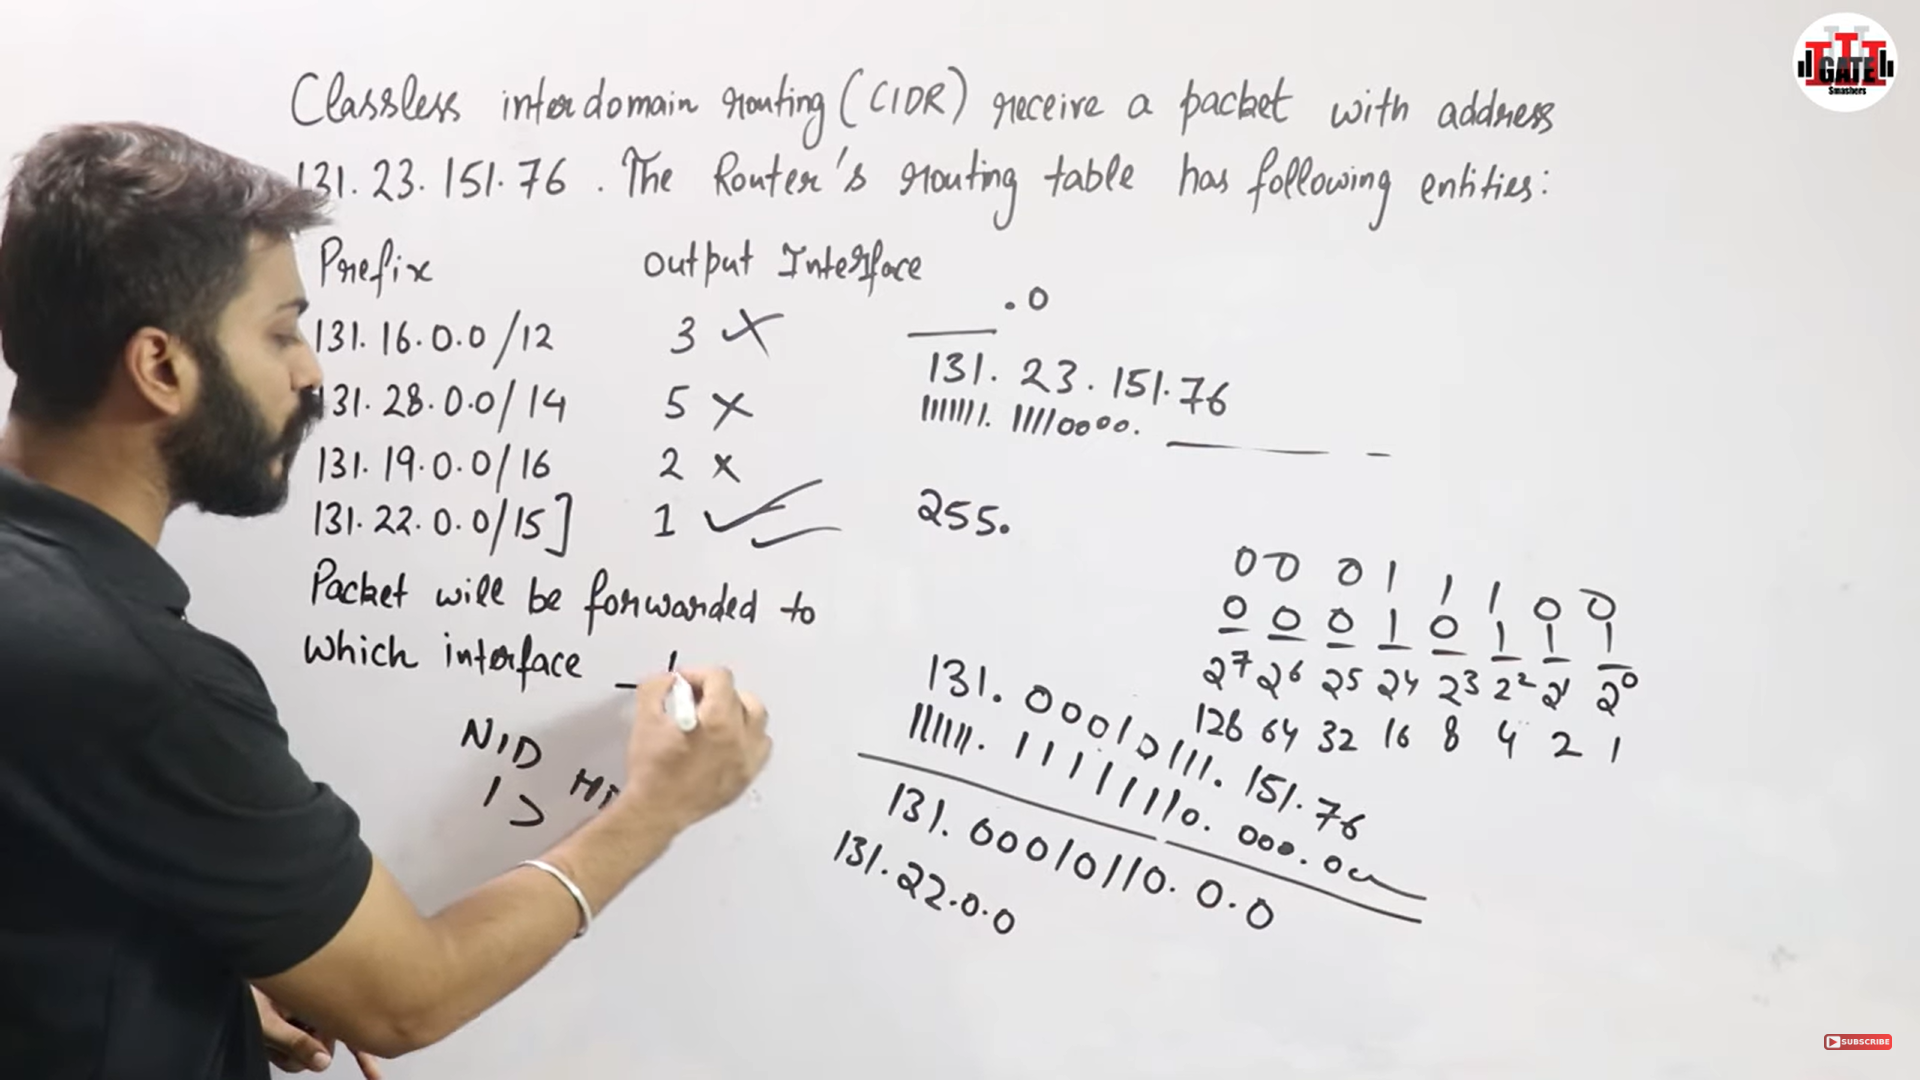 Classless interdomain routing (CIDR) receive a packet with address
131.23.151.76. The Router's routing table has following entities:
Prefix Output Interface
131.16.0.0/12 3
131.28.0.0/14 5
131.19.0.0/16 2
131.22.0.0/15] 1
Packet will be forwarded to
which interface
NID
.0
131.23.151.76
1111111. 11110000.
255.
0 0 0 1 1 1 0 0
0 0 0 1 0 1 1 1
2^7 2^6 2^5 2^4 2^3 2^2 2^1 2^0
126 64 32 16 8 4 2 1
131.00010111.151.76
131.00010110.0.0
131.22.0.0
GATE
Smashers
SUBSCRIBE